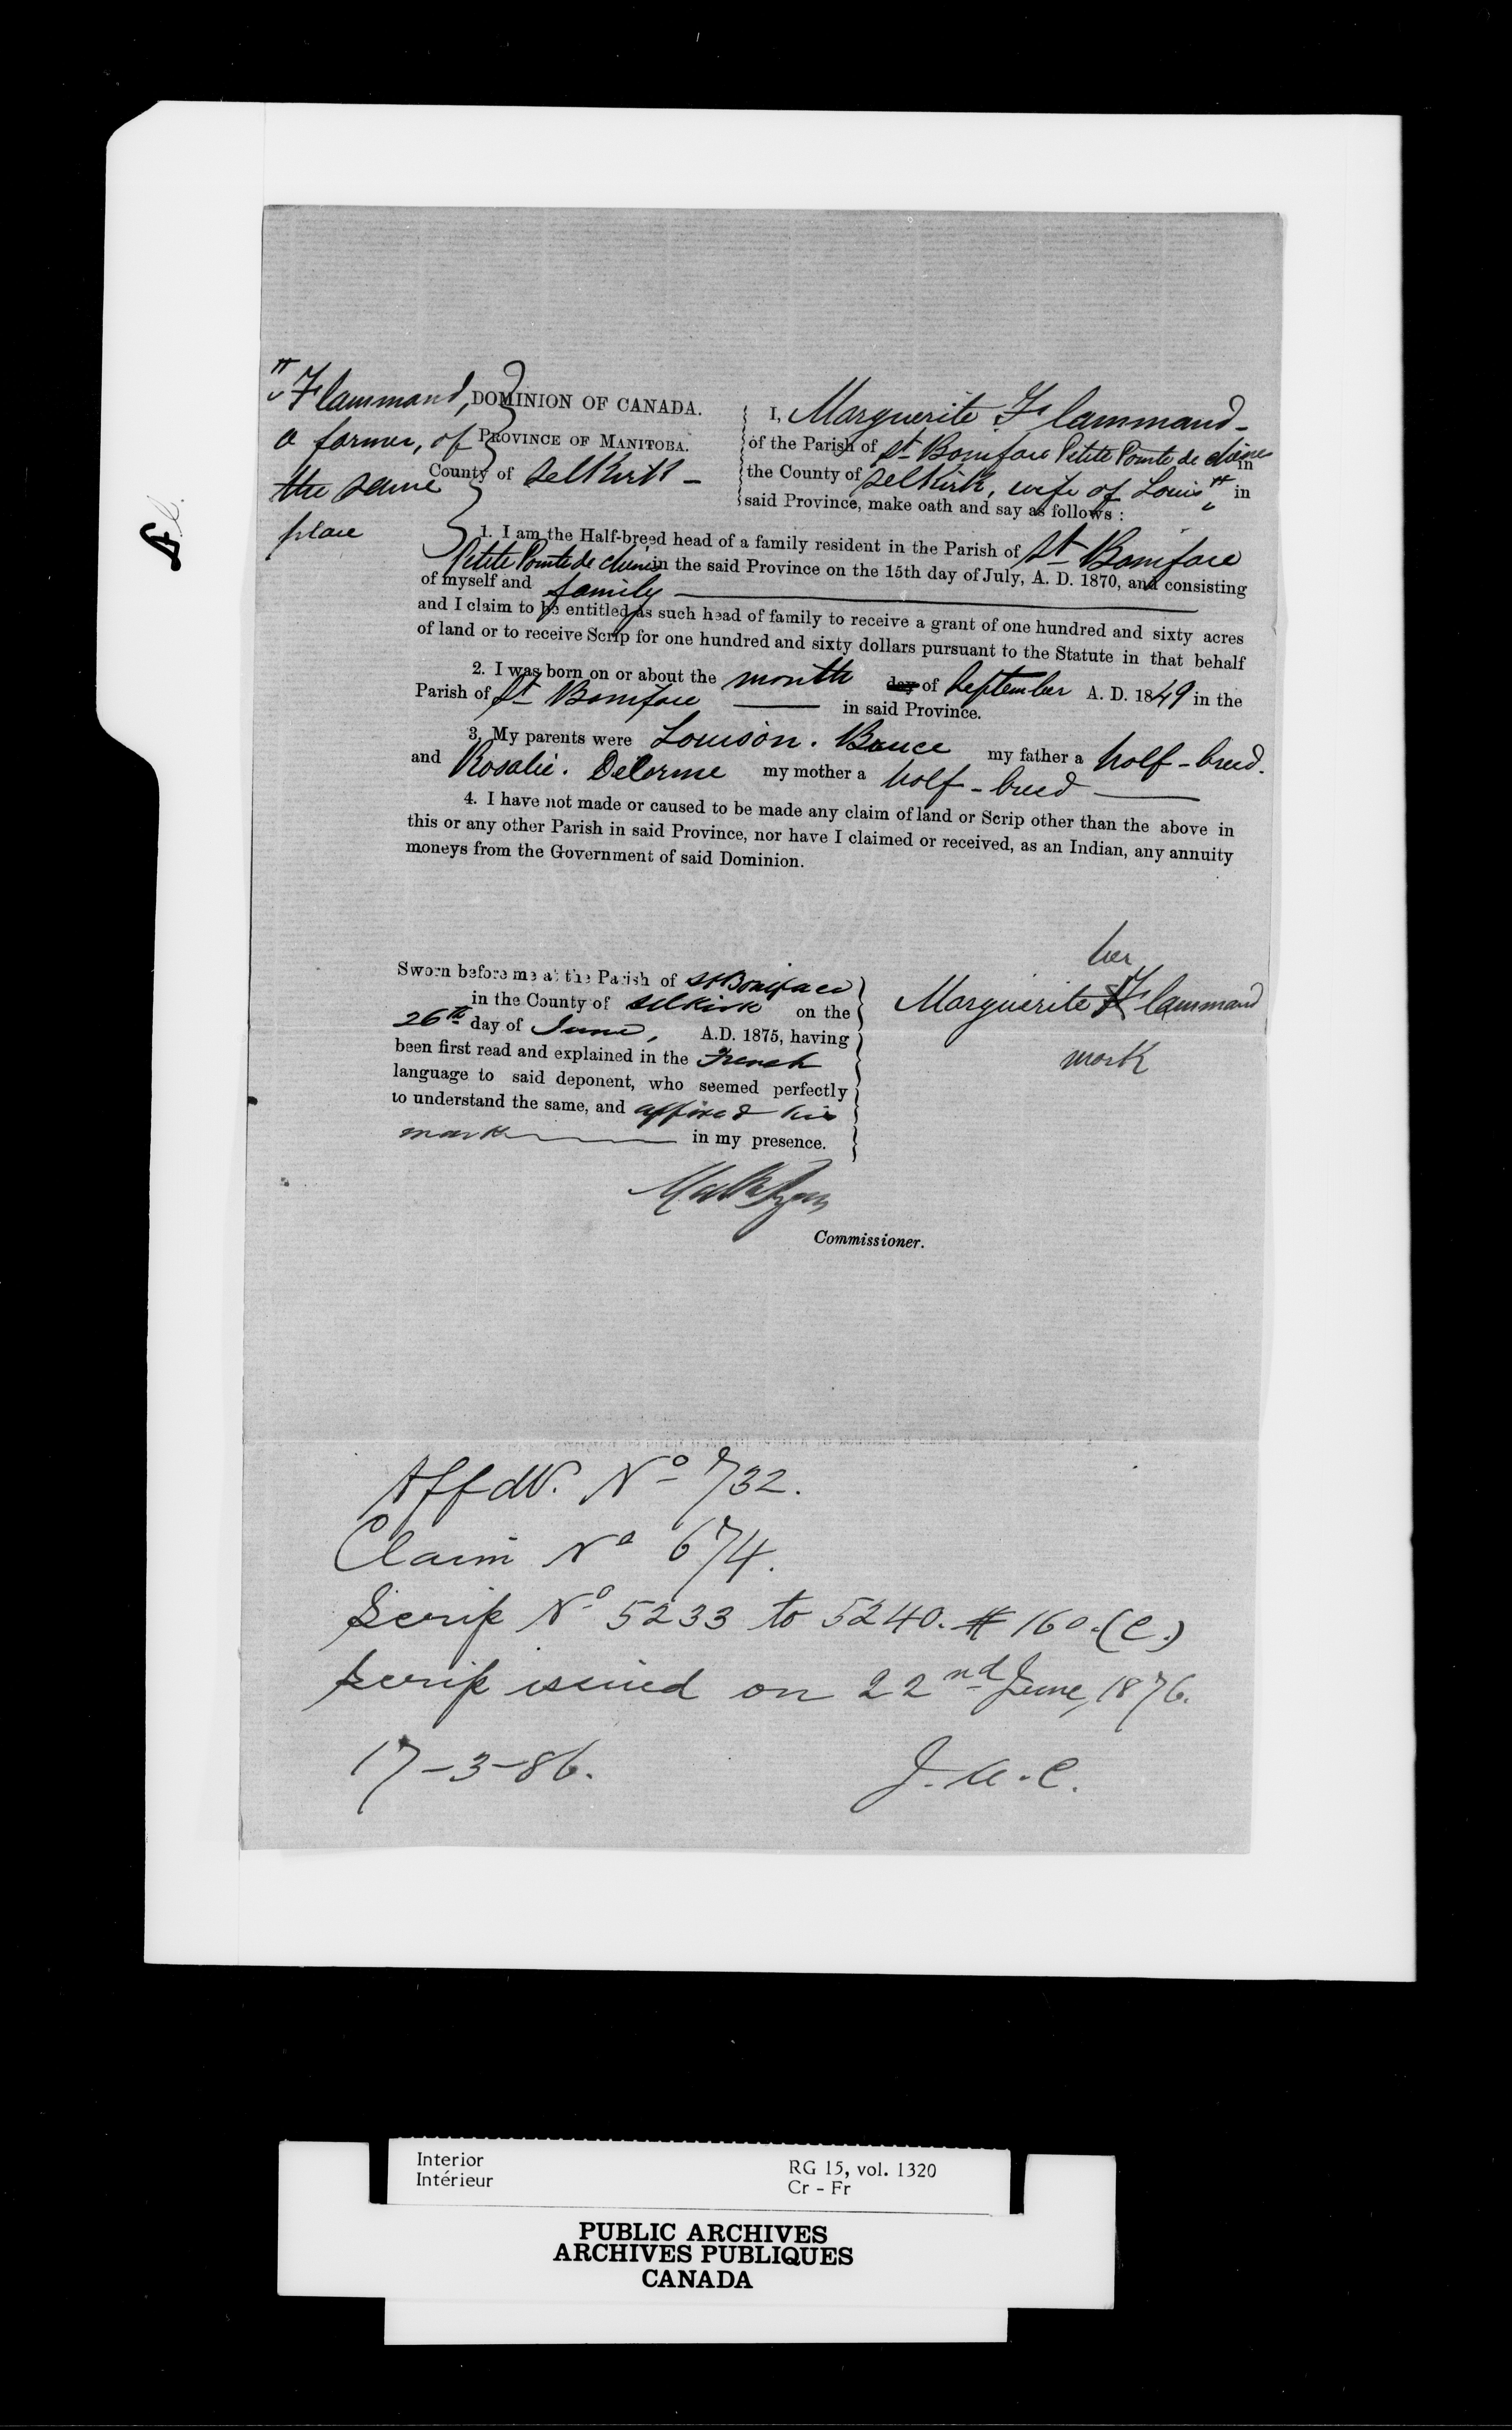 " Flammand,
a farmer, of
the same
place
DOMINION OF CANADA.
PROVINCE OF MANITOBA.
County of Selkirk -
I, Marguerite Flammand -
of the Parish of St Boniface Petite Pointe de chêne in
the County of Selkirk, wife of Louis " in
said Province, make oath and say as follows :
1. I am the Half-breed head of a family resident in the Parish of St Boniface
Petite Pointe de chêne in the said Province on the 15th day of July, A. D. 1870, and consisting
of myself and family
and I claim to be entitled as such head of family to receive a grant of one hundred and sixty acres
of land or to receive Scrip for one hundred and sixty dollars pursuant to the Statute in that behalf
2. I was born on or about the month day of September A. D. 1849 in the
Parish of St Boniface in said Province.
3. My parents were Louison. Bauce my father a half-breed.
and Rosalie. Delorme my mother a half-breed
4. I have not made or caused to be made any claim of land or Scrip other than the above in
this or any other Parish in said Province, nor have I claimed or received, as an Indian, any annuity
moneys from the Government of said Dominion.
Sworn before me at the Parish of St Boniface
in the County of Selkirk on the
26th day of June, A.D. 1875, having
been first read and explained in the French
language to said deponent, who seemed perfectly
to understand the same, and affixed his
mark in my presence.
her
Marguerite X Flammand
mark
Commissioner.
Affdt. No 732.
Claim No 674.
Scrip No 5233 to 5240. # 160.(C.)
Scrip issued on 22nd June, 1876.
17-3-86. J.A.C.
Interior
Intérieur
RG 15, vol. 1320
Cr - Fr
PUBLIC ARCHIVES
ARCHIVES PUBLIQUES
CANADA